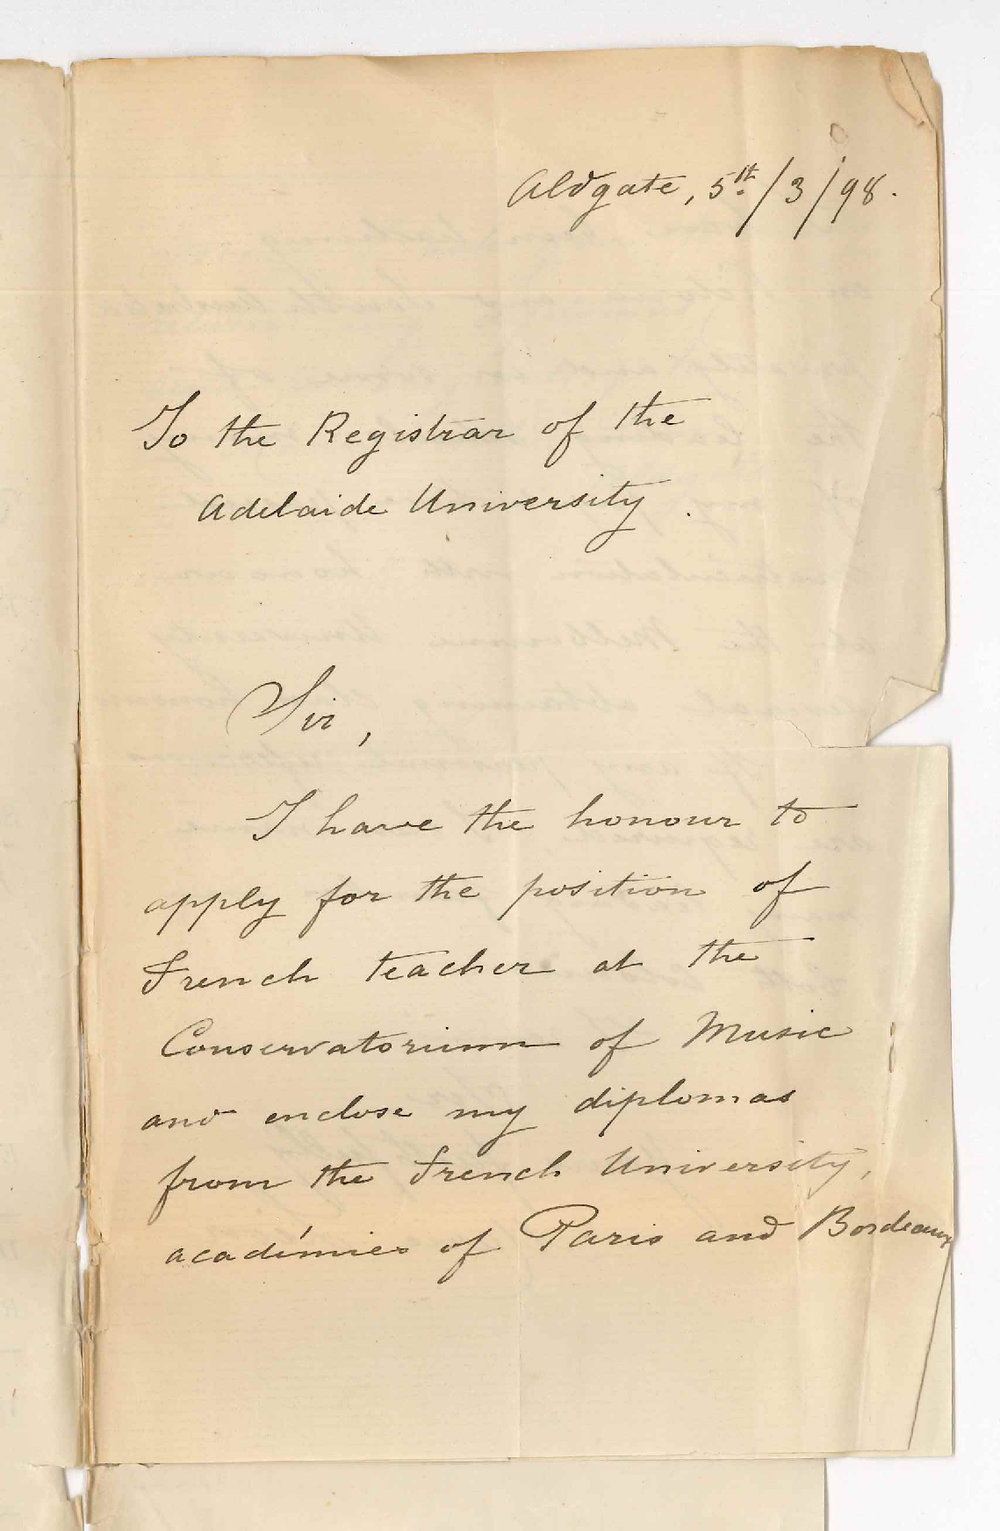 Aldgate, 5th/3/98.
To the Registrar of the
Adelaide University.
Sir,
I have the honour to
apply for the position of
French teacher at the
Conservatorium of Music
and enclose my diplomas
from the French University,
académies of Paris and Bordeaux